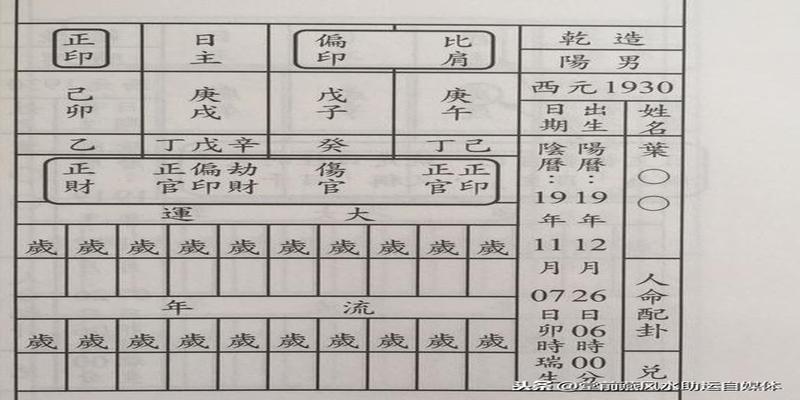 乾造
陽男
西元1930
姓名
葉○○
人命配卦
兌
出生日期
陽曆：19年12月26日06時00分
陰曆：19年11月07日卯時瑞生
比肩
偏印
日主
正印
庚午
戊子
庚戌
己卯
丁己
癸
丁戊辛
乙
正印
正官
傷官
劫財
偏印
正官
正財
大運
歲歲歲歲歲歲歲歲歲歲
流年
歲歲歲歲歲歲歲歲歲歲